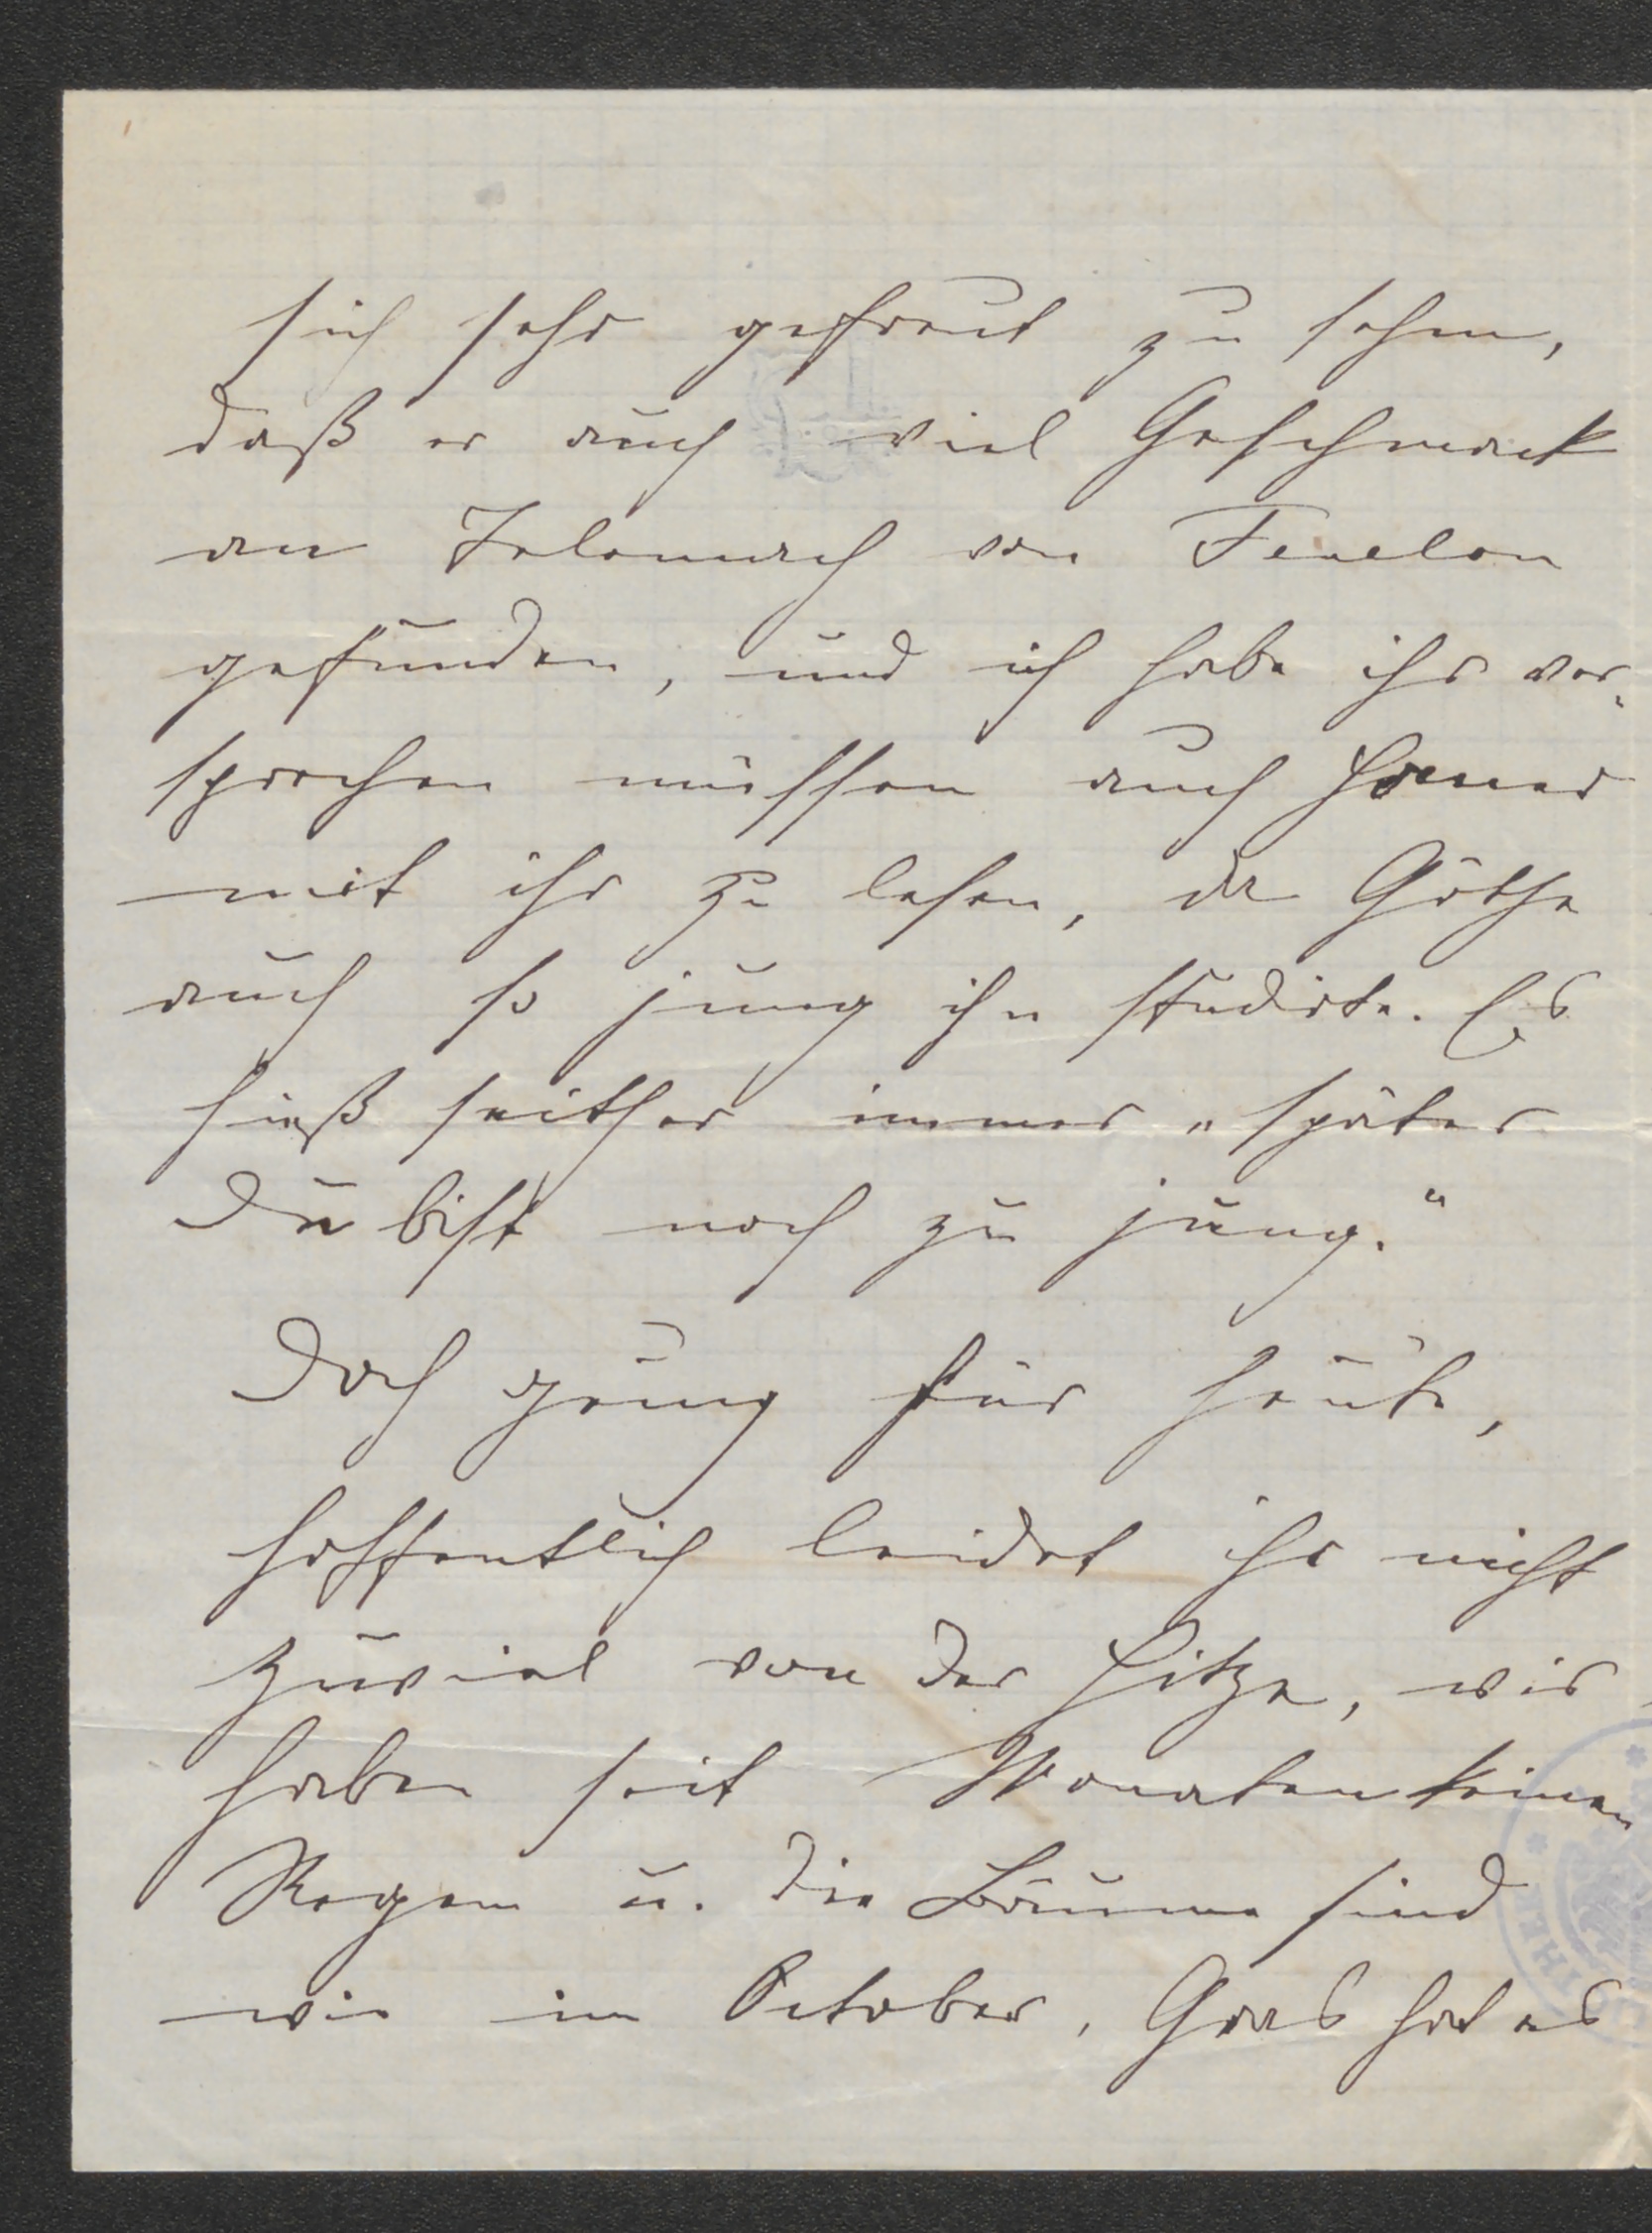 sich sehr gefreut zu sehen,
daß er auch viel Geschmack
an Telemach von Fenelon
gefunden, und ich habe ihr ver-
sprechen müssen auch Homer
mit ihr zu lesen, da Göthe
auch so jung ihn studirte. Es
hieß seither immer „später
Du bist noch zu jung.“
Doch genug für heute,
hoffentlich leidet ihr nicht
zuviel von der Hitze, wir
haben seit Monaten keinen
Regen u. die Bäume sind
wie im October, Gras hat es